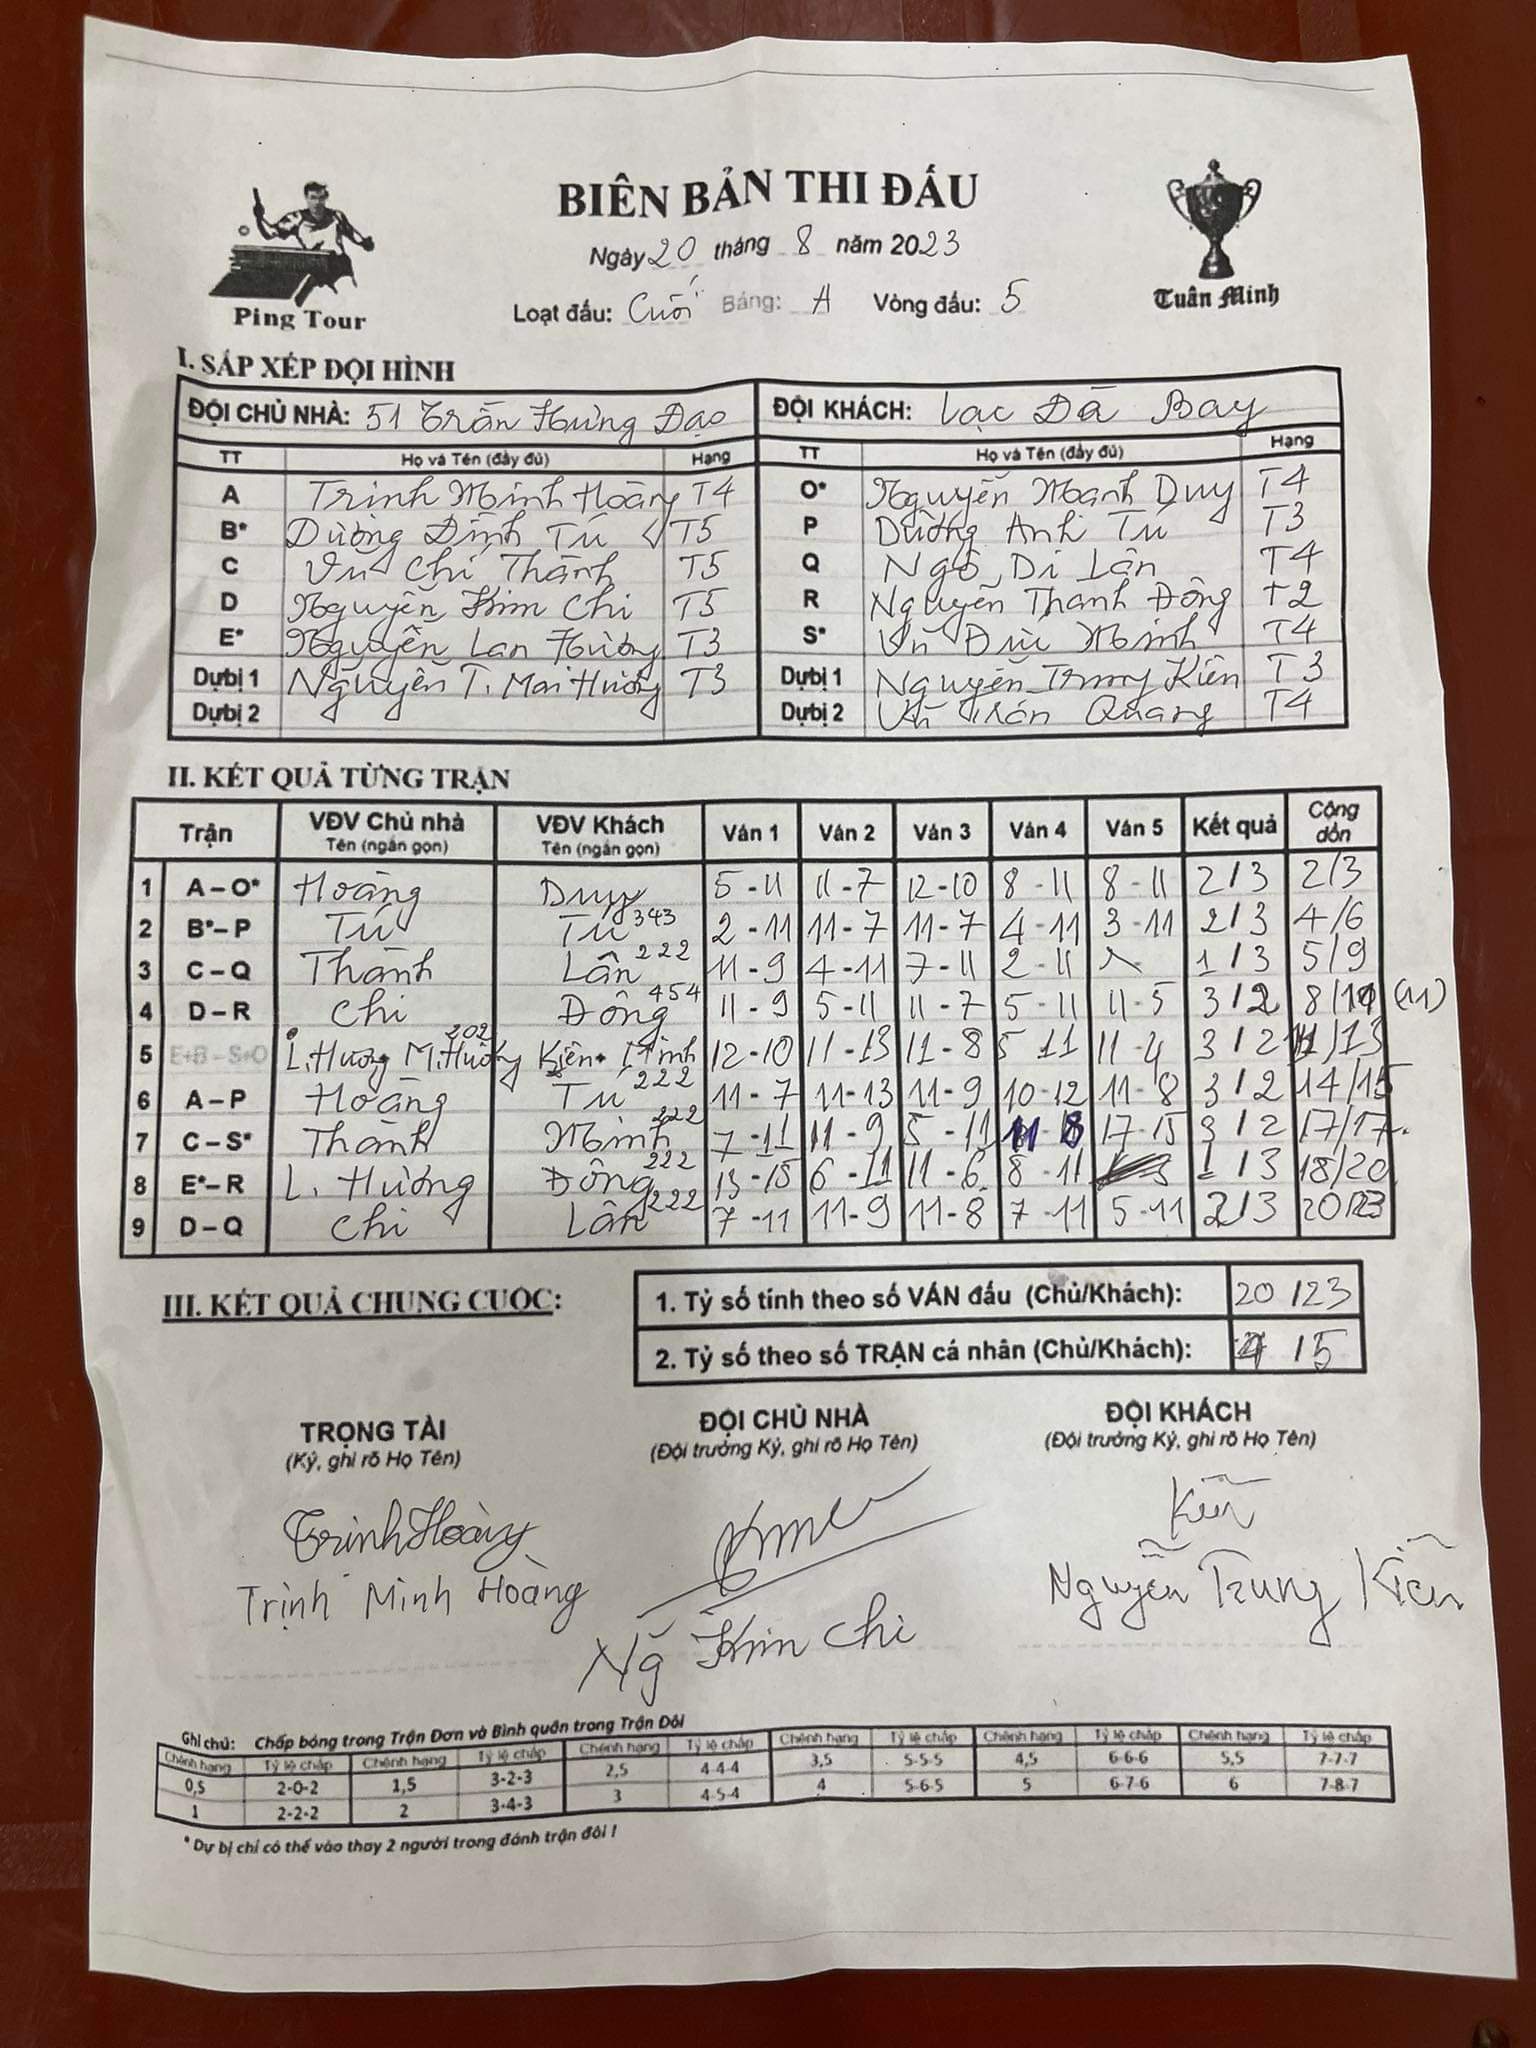 BIÊN BẢN THI ĐẤU
Ngày 20 tháng 8 năm 2023
Ping Tour
Tuấn Minh
Loạt đấu: Cuối Bảng: A Vòng đấu: 5
I. SẮP XẾP ĐỘI HÌNH
ĐỘI CHỦ NHÀ: 51 Trần Hưng Đạo ĐỘI KHÁCH: Lạc Đà Bay
TT Họ và Tên (đầy đủ) Hạng TT Họ và Tên (đầy đủ) Hạng
A Trịnh Minh Hoàng T4 O* Nguyễn Mạnh Duy T4
B* Dương Đình Tú T5 P Dương Anh Tú T3
C Vũ Chí Thành T5 Q Ngô Di Lân T4
D Nguyễn Kim Chi T5 R Nguyễn Thành Đông T2
E* Nguyễn Lan Hương T3 S* Vũ Đức Minh T4
Dự bị 1 Nguyễn T. Mai Hương T3 Dự bị 1 Nguyễn Trung Kiên T3
Dự bị 2 Dự bị 2 Vũ Trần Quang T4
II. KẾT QUẢ TỪNG TRẬN
Trận VĐV Chủ nhà Tên (ngắn gọn) VĐV Khách Tên (ngắn gọn) Ván 1 Ván 2 Ván 3 Ván 4 Ván 5 Kết quả Cộng dồn
1 A – O* Hoàng Duy 5-11 11-7 12-10 8-11 8-11 2/3 2/3
2 B* – P Tú Tú 343 2-11 11-7 11-7 4-11 3-11 2/3 4/6
3 C – Q Thành Lân 222 11-9 4-11 7-11 2-11 1/3 5/9
4 D – R Chi Đông 454 11-9 5-11 11-7 5-11 11-5 3/2 8/11 (11)
5 E+B – S+O L. Hương M. Hương 202 Kiên + Minh 12-10 11-13 11-8 5-11 11-4 3/2 11/13
6 A – P Hoàng Tú 222 11-7 11-13 11-9 10-12 11-8 3/2 14/15
7 C – S* Thành Minh 222 7-11 11-9 5-11 11-8 17-15 3/2 17/17
8 E* – R L. Hương Đông 222 13-15 6-11 11-6 8-11 1/3 18/20
9 D – Q Chi Lân 222 7-11 11-9 11-8 7-11 5-11 2/3 20/23
III. KẾT QUẢ CHUNG CUỘC:
1. Tỷ số tính theo số VÁN đấu (Chủ/Khách): 20/23
2. Tỷ số theo số TRẬN cá nhân (Chủ/Khách): 4/5
TRỌNG TÀI ĐỘI CHỦ NHÀ ĐỘI KHÁCH
(Ký, ghi rõ Họ Tên) (Đội trưởng Ký, ghi rõ Họ Tên) (Đội trưởng Ký, ghi rõ Họ Tên)
Trịnh Hoàng Kiên
Trịnh Minh Hoàng Ng Kim Chi Nguyễn Trung Kiên
Ghi chú: Chấp bóng trong Trận Đơn và Bình quân trong Trận Đôi
Chênh hạng Tỷ lệ chấp Chênh hạng Tỷ lệ chấp Chênh hạng Tỷ lệ chấp Chênh hạng Tỷ lệ chấp Chênh hạng Tỷ lệ chấp Chênh hạng Tỷ lệ chấp
0,5 2-0-2 1,5 3-2-3 2,5 4-4-4 3,5 5-5-5 4,5 6-6-6 5,5 7-7-7
1 2-2-2 2 3-4-3 3 4-5-4 4 5-6-5 5 6-7-6 6 7-8-7
* Dự bị chỉ có thể vào thay 2 người trong đánh trận đôi !